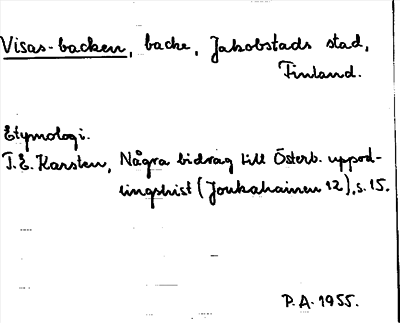 Visas-backen, backe, Jakobstads stad,
Finland.
Etymologi.
T.E. Karsten, Några bidrag till Österb. uppod-
lingshist (Joukahainen 12), s. 15.
P.A. 1955.